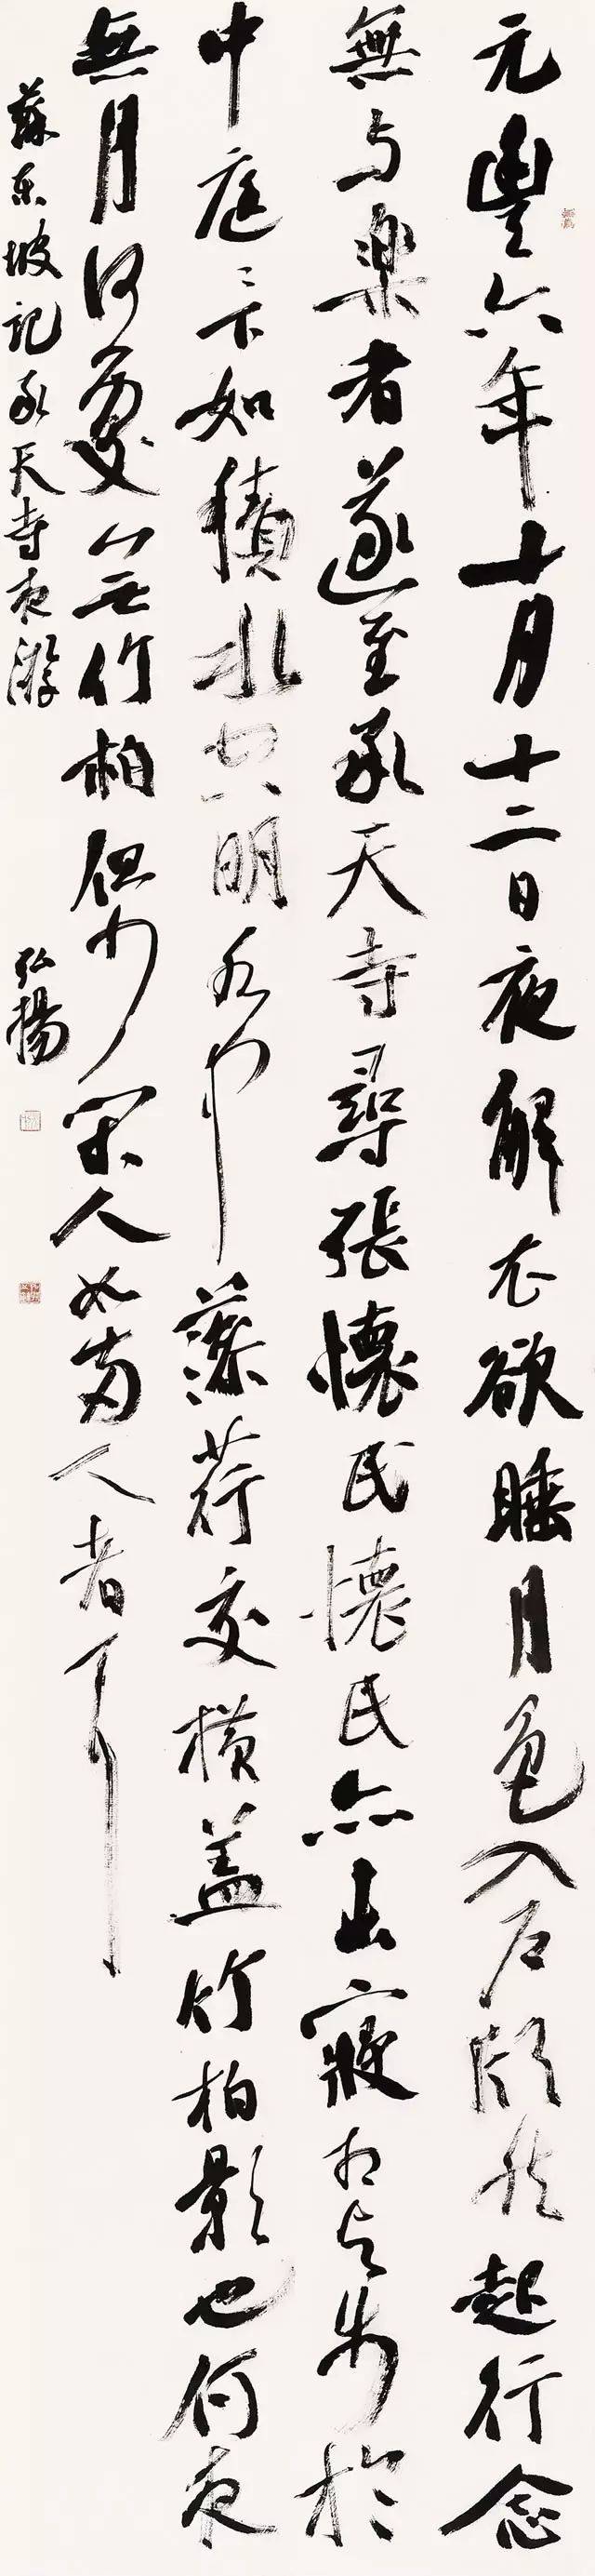 元豐六年十月十二日夜解衣欲睡月色入户欣然起行念
無与樂者遂至承天寺尋張懷民懷民亦未寢相与步於
中庭々下如積水空明水中藻荇交橫盖竹柏影也何夜
無月何處無竹柏但少閑人如两人者耳
蘇東坡記承天寺夜游
弘揚